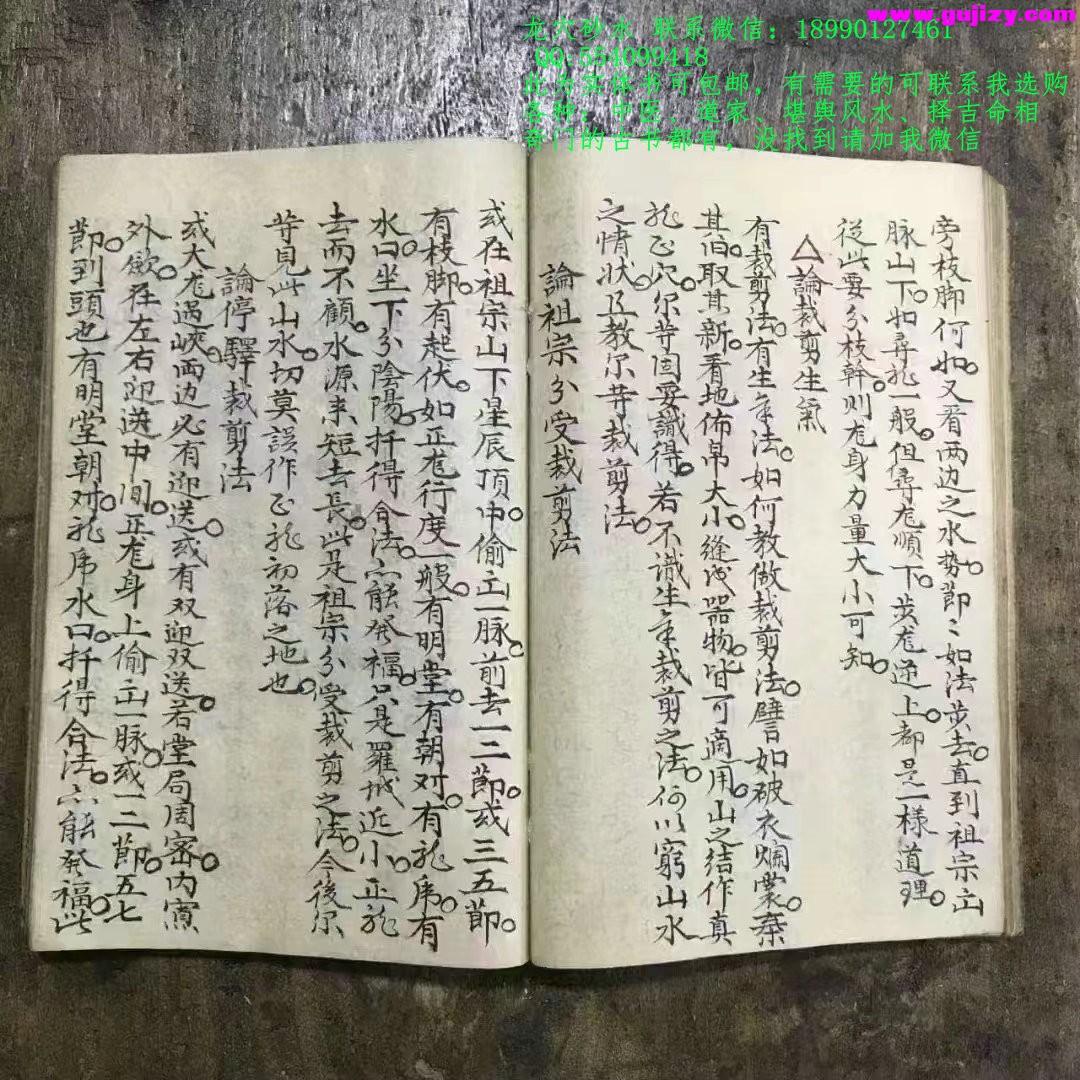 www.gujizy.com
龙穴砂水 联系微信：18990127461
QQ:554099418
此为实体书可包邮，有需要的可联系我选购
各种：中医、道家、堪舆风水、择吉命相
奇门的古书都有，没找到请加我微信
旁枝脚何如。又看两边之水势。節〻如法黄去。直到祖宗出
脉山下。如尋龍一般。但尋龙順下。黄龙逆上。都是一樣道理。
從此要分枝幹。則龙身力量大小可知。
△論裁剪生氣
有裁剪法。有生气法。如何教做裁剪法。譬如破衣爛裳。棄
其旧。取其新。看地佈帛大小。縫成器物。皆可適用。山之結作真
龍正穴。尔等固要識得。若不識生气裁剪之法。何以窮山水
之情狀。且教尔等裁剪法。
論祖宗分受裁剪法
或在祖宗山下星辰頂中。偷出一脉。前去一二節。或三五節。
有枝脚。有起伏。如正龙行度一般。有明堂。有朝对。有龍虎。有
水口。坐下分陰陽。扦得合法。亦能発福。只是羅城近小。正龍
去而不顧。水源来短去長。此是祖宗分受裁剪之法。今後尔
等見此山水。切莫誤作正龍初落之地也。
論停驛裁剪法
或大龙過峽。两边必有迎送。或有双迎双送。若堂局周密。内寬
外歛。在左右迎送中间。正龙身上偷出一脉。或一二節。五七
節。到頭也有明堂朝对。龍虎水口。扦得合法。亦能発福。此